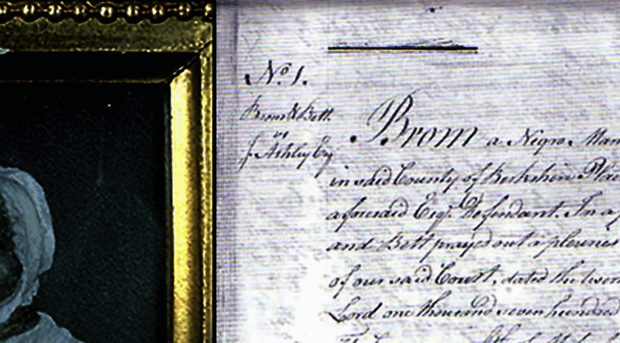 No. 1.
Brom & Bett
vs
J. Ashley Esq
Brom a Negro Man
in said County of Berkshire Plai
aforesaid Esqr. Defendant. In a p
and Bett prayed out a pluries
of our said Court, dated the twen
Lord one thousand seven hundred